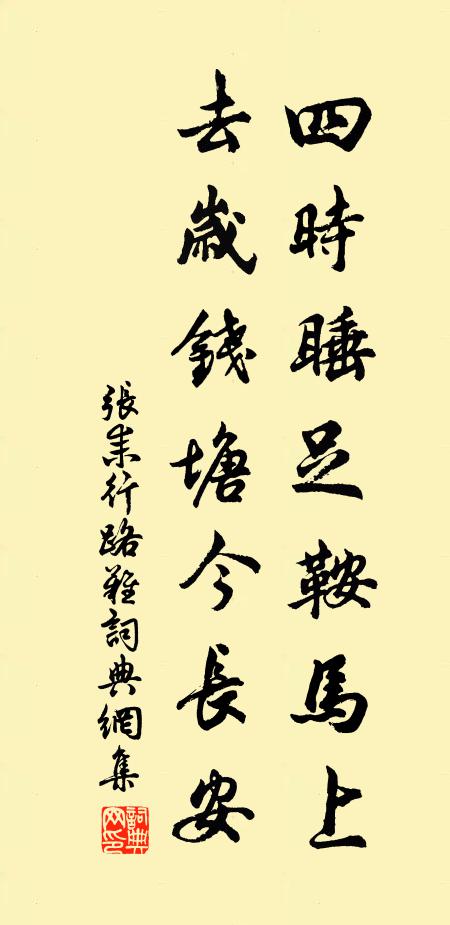 四時睡足鞍馬上
去歲錢塘今長安
張耒行路難詞典網集
詞典網印